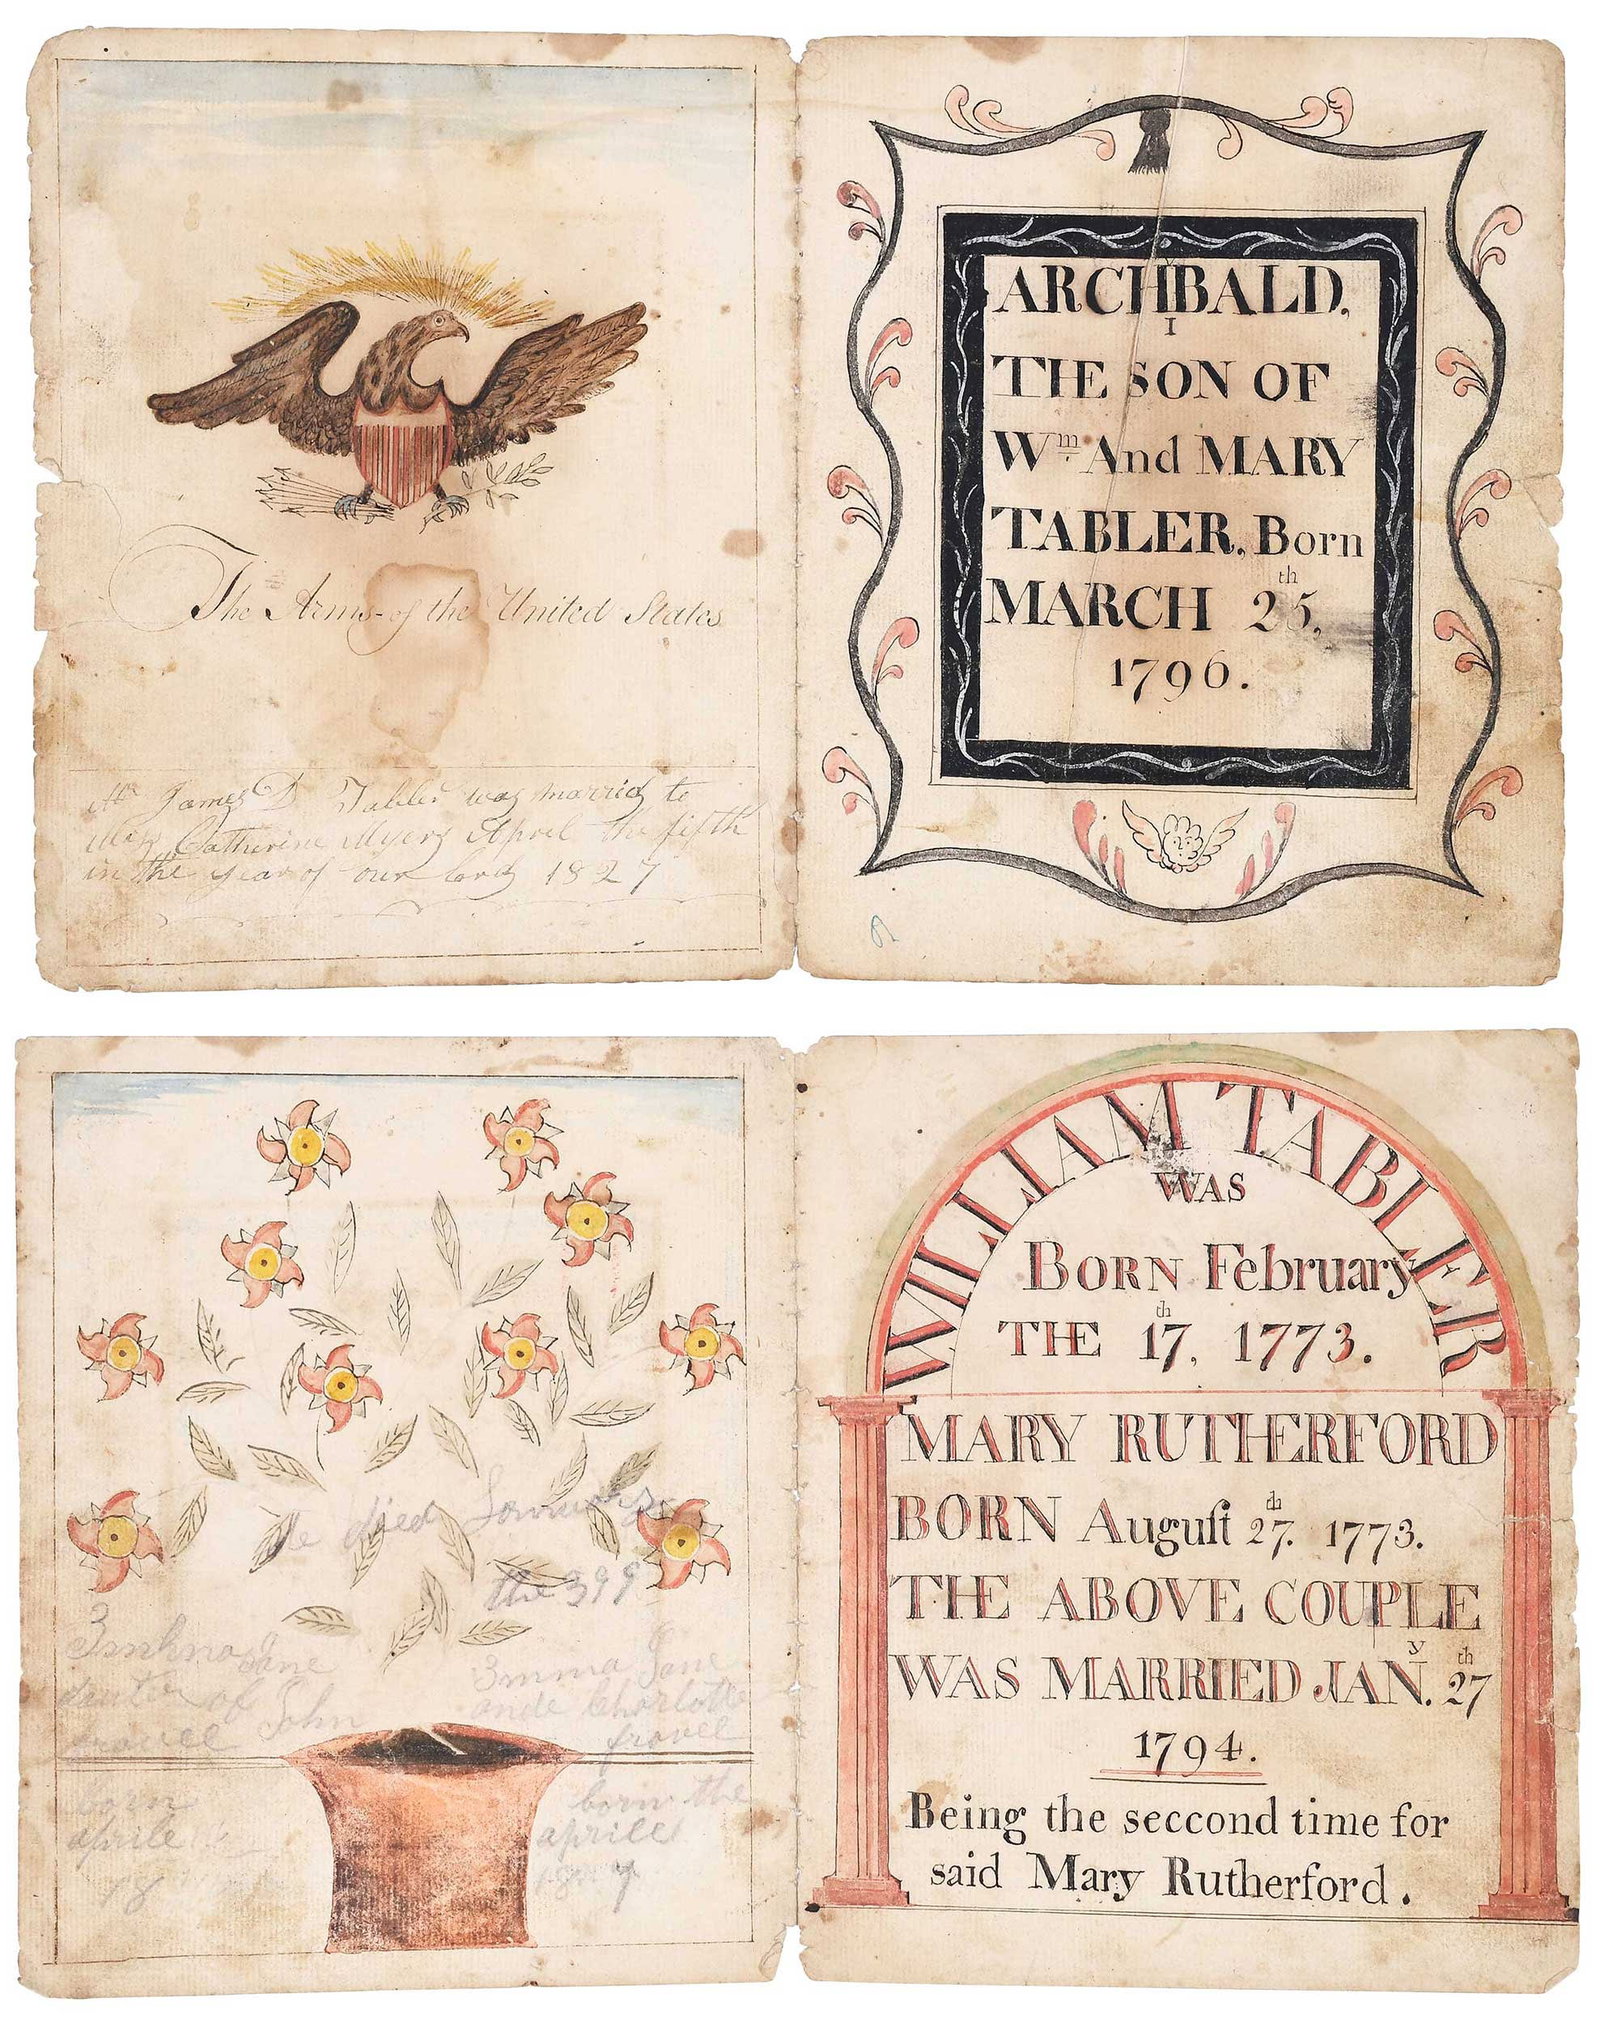 The Arms of the United States
Mr James D Tabler was marrid to
Mary Catherine Myers April the fifth
in the year of our lord 1827
ARCHIBALD,
THE SON OF
Wm And MARY
TABLER, Born
MARCH 25th,
1796.
died
the
Jane
of John
born
aprile
18
Emma Jane
ande Charlotte
frovel
born the
aprille
WILLIAM TABLER
WAS
BORN February
THE 17th, 1773.
MARY RUTHERFORD
BORN Auguſt 27th. 1773.
THE ABOVE COUPLE
WAS MARRIED JANy. 27th
1794.
Being the seccond time for
said Mary Rutherford.